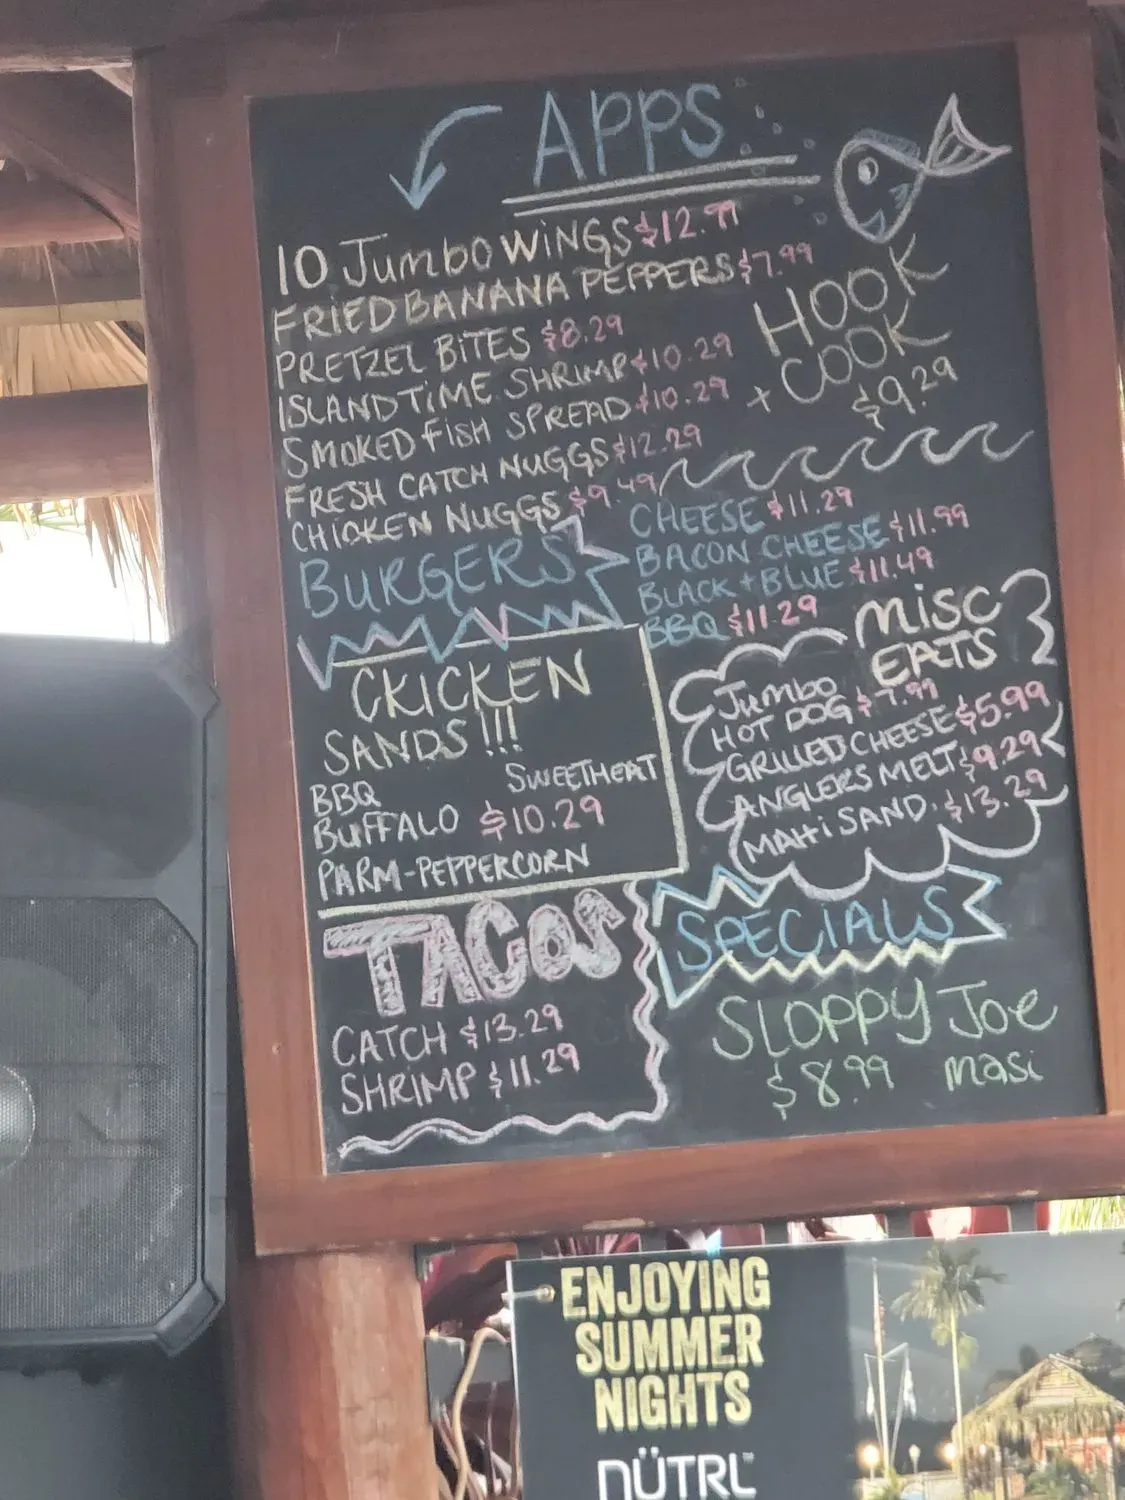 APPS
10 Jumbo WiNGS $12.99
FRiED BANANA PEPPERS $7.99
PRETZEL BiTES $8.29
ISLAND TiME SHRIMP $10.29
SMOKED FISH SPREAD $10.29
FRESH CATCH NUGGS $12.29
CHICKEN NUGGS $9.49
HOOK
+ COOK
$9.29
BURGERS
CHEESE $11.29
BACON CHEESE $11.99
BLACK + BLUE $11.49
BBQ $11.29
CKICKEN
SANDS!!!
BBQ SWEETHEAT
BUFFALO $10.29
PARM-PEPPERCORN
MISC
EATS
Jumbo
HOT DOG $7.99
GRILLED CHEESE $5.99
ANGLERS MELT $9.29
MAHi SAND. $13.29
TACOS
CATCH $13.29
SHRIMP $11.29
SPECIALS
SLOPPY Joe
$8.99 masi
ENJOYING
SUMMER
NIGHTS
NÜTRL™